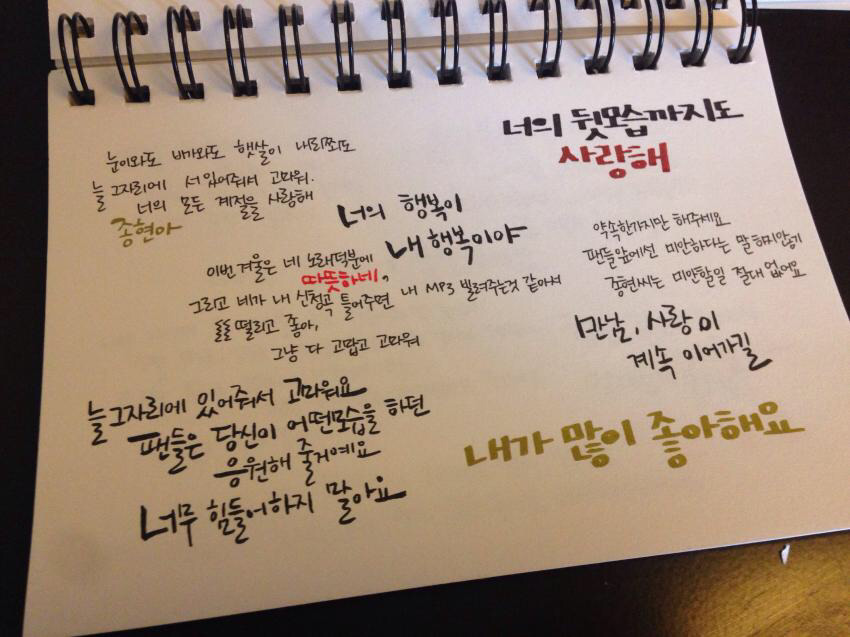 눈이와도 비가와도 햇살이 내리쬐도
늘 그자리에 서있어줘서 고마워.
너의 모든 계절을 사랑해
종현아
너의 뒷모습까지도
사랑해
너의 행복이
내 행복이야
이번 겨울은 네 노래덕분에
따뜻하네,
그리고 네가 내 신청곡 틀어주면 내 MP3 빌려주는것 같아서
떨리고 좋아,
그냥 다 고맙고 고마워
약속한가지만 해주세요
팬들앞에선 미안하다는 말 하지않기
종현씨는 미안할일 절대 없어요
만남, 사랑이
계속 이어가길
늘 그자리에 있어줘서 고마워요
팬들은 당신이 어떤모습을 하던
응원해 줄거예요
너무 힘들어하지 말아요
내가 많이 좋아해요